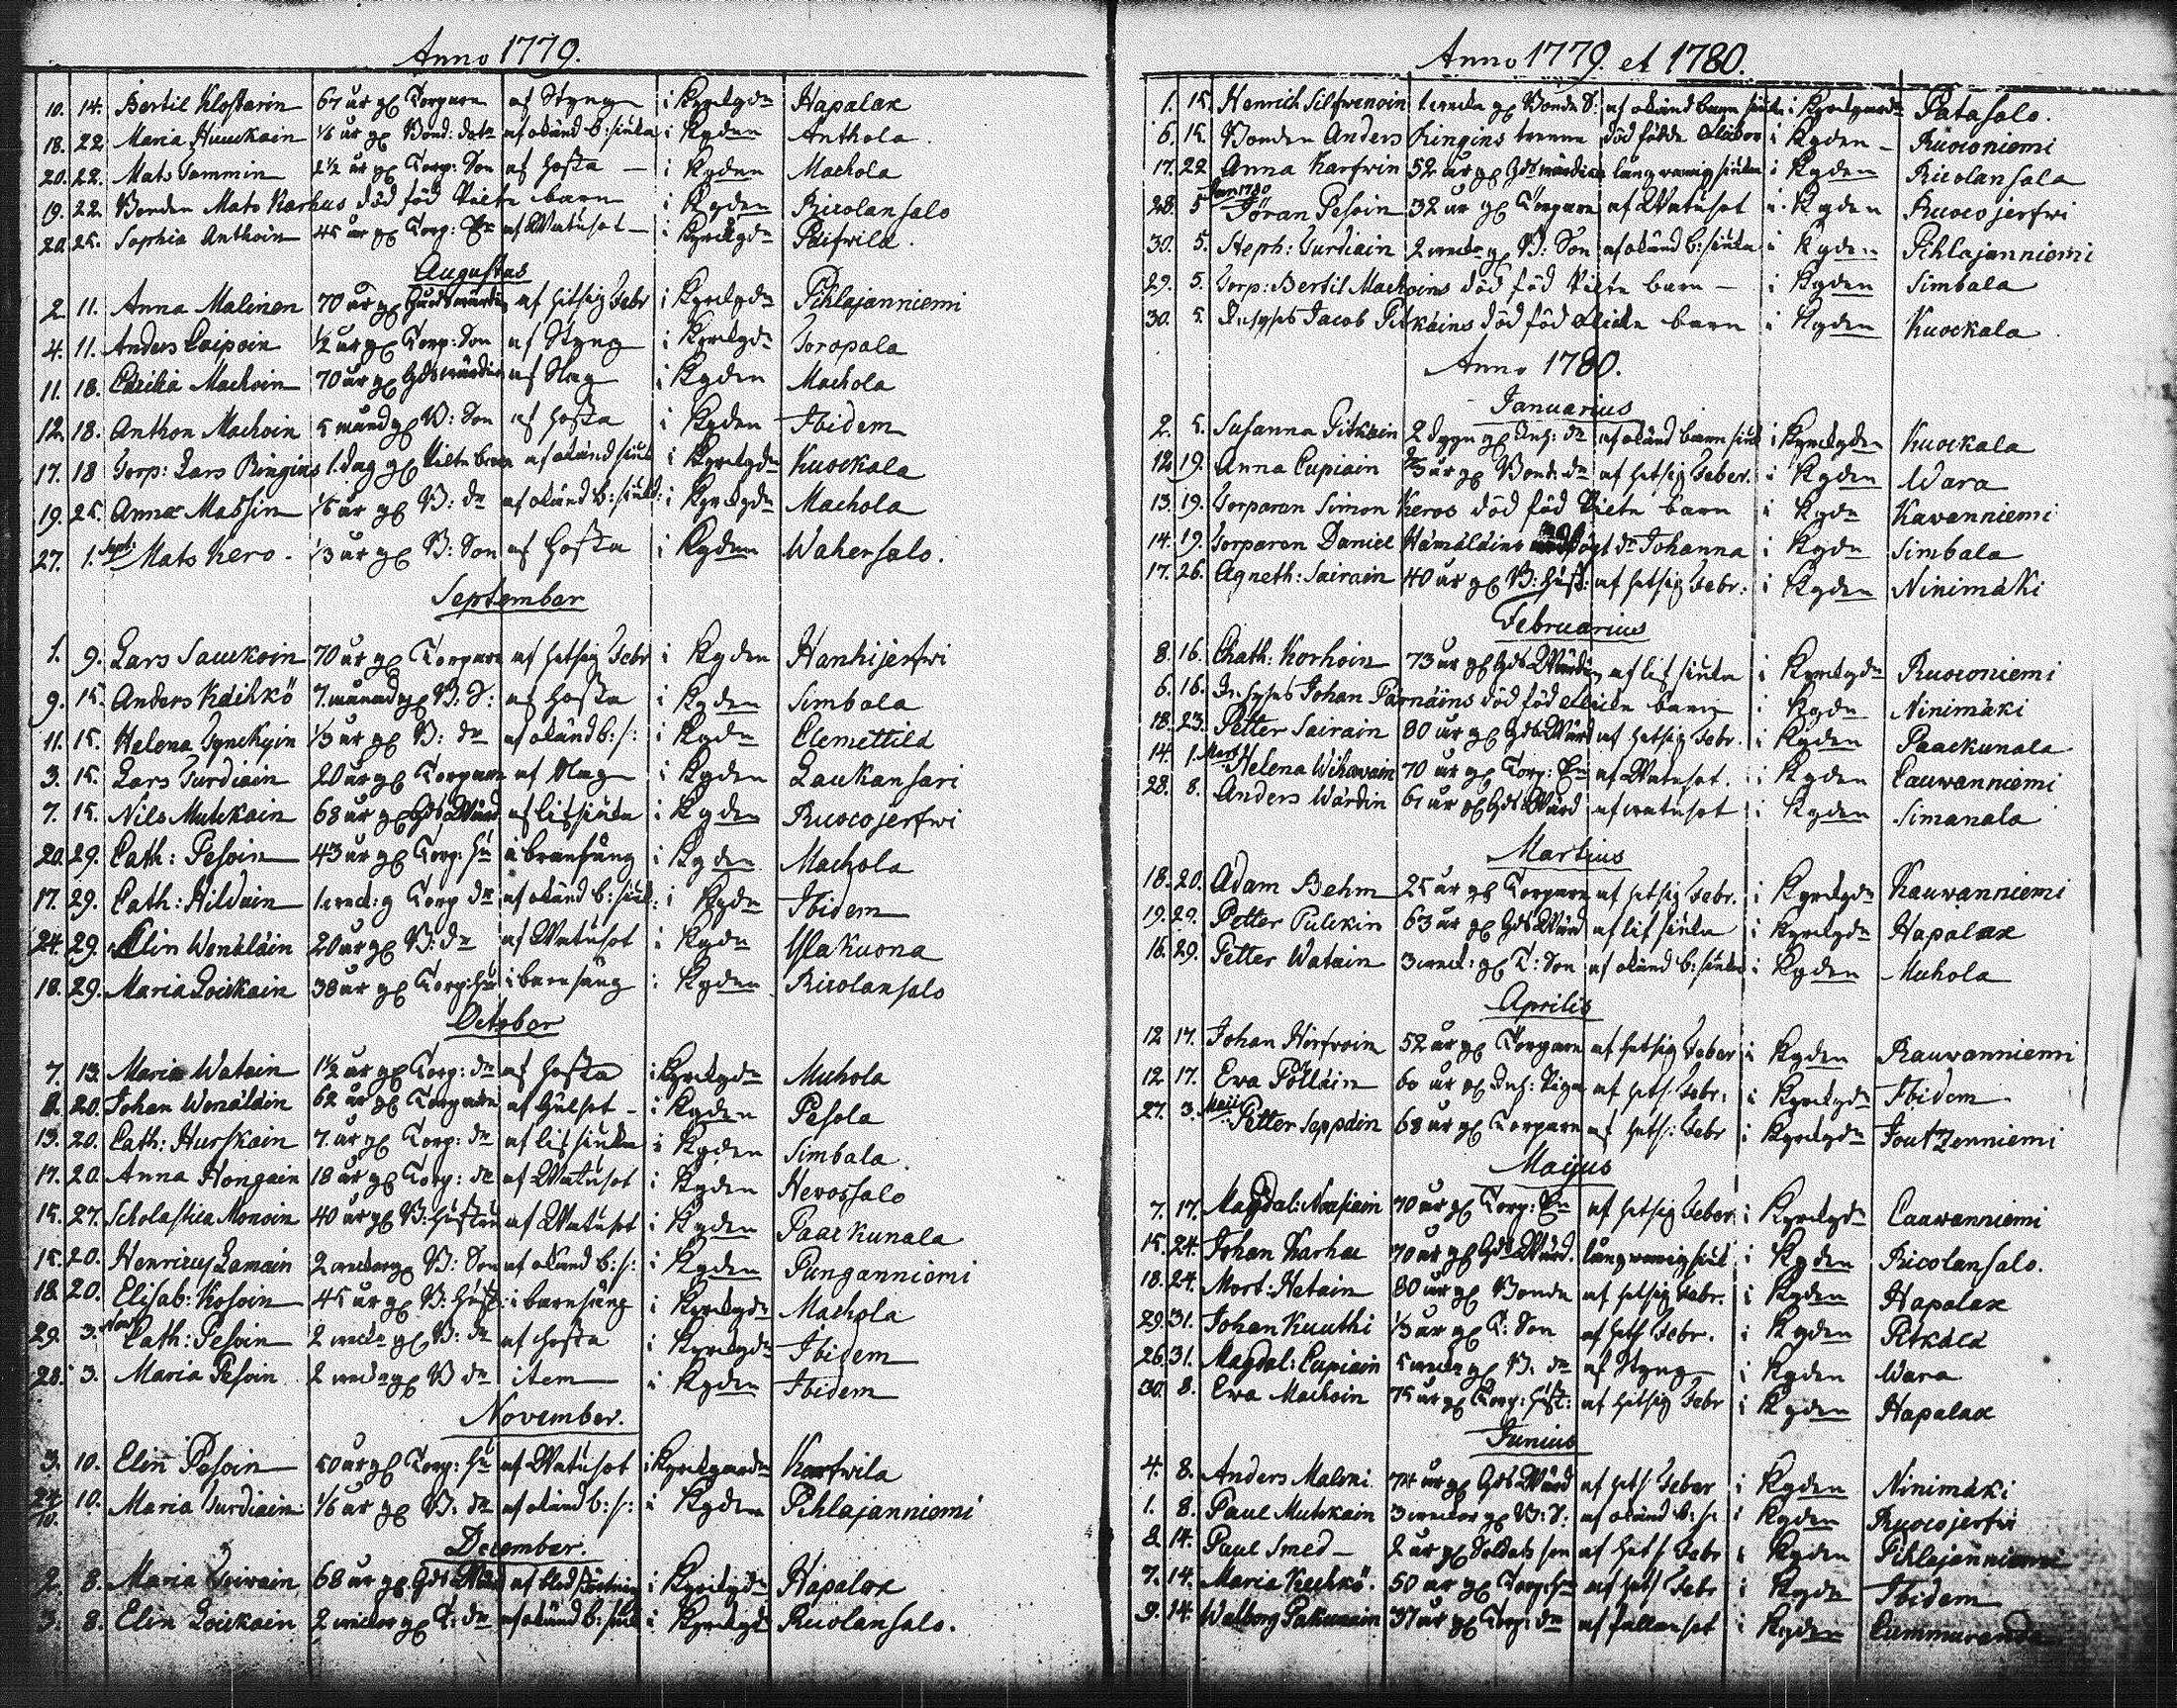 Anno 1779.
10. 14. Bertil Klostarin 67 år gl Torpare af Styng i Kyrckgdn Hapalax
18. 22. Maria Huuckain 1/6 år gl Bond: dotr af okänd b: siuka i Kgden Anthola
20. 22. Mats Tommin 2½ år gl Torp: Son af hosta i Kgden Machola
19. 22. Bonden Mats Karhus död föd Pilte barn i Kgden Ricolansalo
20. 25. Sophia Anthoin 45 år gl Torp: En af Watusot i Kyrckgdn Päifwilä.
Augustus
2. 11. Anna Malinen 70 år gl af hitsig Febr i Kyrckgdn Pihlajanniemi
4. 11. Anders Caipoin ½ år gl Torp: Son af Styng i Kyrckgdn Toropala
11. 18. Cecilia Machoin 70 år gl af Slag i Kgden Machola
12. 18. Anthon Machoin 5 månd gl B: Son af hosta i Kgden Ibidem
17. 18 Torp: Lars Ringins 1. dag gl Pilte barn af okänd siuk i Kyrckgdn Kuockala
19. 25. Anna Matsin 1/6 år gl B: dr af okänd b: siukd: i Kyrckgdn Machola
27. 1. Sept: Mats Kero - 1/3 år gl B: Son af hosta i Kgden Wahersalo.
September
1. 9. Lars Sauckoin 70 år gl Torpare af hetsig Febr i Kgden Hanhijerfwi
9. 15. Anders Käihkö 7. månad gl B: S: af hosta i Kgden Simbala
11. 15. Helena Tynckyin 1/3 år gl B: dr af okänd b: s: i Kgdn Clemettilä
3. 15. Lars Turdiain 20 år gl Torpare af Slag i Kgden Laukansari
7. 15. Nils Mutckain 68 år gl Gds Wärd af litsiuka i Kgden Ruocojerfwi
20. 29. Cath: Pesoin 43 år gl Torp: hu i barnsäng i Kgden Machola
17. 29. Cath: Hilduin 1 weck: g Torp dr af okänd b: siuk: i Kgdn Ibidem
24. 29. Elin Wenäläin 20 år gl B: dr af Watusot i Kgdn Yläkuona
18. 29. Maria Loickain 38 år gl Torp: hu i barnsäng i Kgden Ricolansalo
October
7. 13. Maria Watain 1½ år gl Torp: dr af hosta i Kyrckgdn Muhola
8. 20. Johan Wenäläin 62 år gl Torparen af Gulsot - i Kgden Pesola
13. 20. Cath: Hurskain 7. år gl Torp: dr af litsiuka i Kgden Simbala.
17. 20. Anna Hongain 18 år gl Torp: dr af Watusot i Kgden Herossalo
15. 27. Scholastica Monoin 40 år gl B: hustru af Watusot i Kgden Paackunala
15. 20. Henricus Lamain 2 weckor gl B: Son af okänd b: s: i Kgden Punganniemi
18. 20. Elisab: Kosoin 45 år gl B: hust: i barnsäng i Kyrckgdn Machola
29. 3. Nov: Cath: Pesoin 2 wecke gl B: dr af hosta i Kyrckgdn Ibidem
28. 3. Maria Pesoin 2 wecke gl B dr item i Kgden Ibidem
November.
3. 10. Elin Pesoin 50 år gl Torp: hu af Watusot i Kyrckgaarden Karfwila
24/10. 10. Maria Turdiain 1/6 år gl B: dr af okänd b: s: i Kgden Pihlajanniemi
December.
2. 8. Maria Toivain 68 år gl Gds Wärd af blodstörtning i Kyrckgdn Hapalax
3. 8. Elin Loickain 2 weckor gl T: dr af okänd b: siuk i Kyrckgd Ricolansalo.
Anno 1779. et 1780.
1. 15. Henrich Silfwenoin 1. wecka gl Bonde S: af okänd barn siuka i Kyrckgaarden Patasalo.
6. 15. Bonden Anders Ringins trenne död födde flickor i Kgden - Ruoconiemi
17. 22 Anna Karfwin 52 år gl långwarig siuka i Kgden Ricolansala
28. 5 Jan 1780 Jöran Pesoin 32 år gl Torpare af Watusot i Kgden Ruocojerfwi
30. 5. Steph: Turdiain 2 wecke gl B: Son af okänd b: siuka i Kgden Pihlajanniemi
29. 5. Torp: Bertil Machoins död föd Pilte barn - i Kgden Simbala
30. 5. Inhyses Jacob Pitkäins död föd flicke barn i Kgden Kuockala
Anno 1780.
Januarius
2. 5. Susanna Pitkäin 2 dygn gl Inh: dr af okänd barn siuk i Kyrckgden Kuockala
12 19. Anna Cupiain 2/3 år gl Bond: dr af hetsig Feber. i Kgden Wara
13. 19. Torparen Simon Keros död föd Pilte barn i Kgdn Kavanniemi
14. 19. Torparen Daniel Hämäläins dr Johanna i Kgdn Simbala
17. 26. Agneth: Sairain 40 år gl B: hust: af hetsig Febr: i Kgden Ninimäki
Februarius
8. 16. Chath: Korhoin 73 år gl Gds Wärdin af litsiuka i Kyrckgdn Ruoconiemi
6. 16. Inhyses Johan Pärnäins död föd flicke barn i Kgdn Ninimäki
18. 23. Petter Sairain 80 år gl Gds Wärd af hetsig Febr. i Kgden Paackunala
14. 1. Mart: Helena Wihavain 70 år gl Torp: En af Watusot. i Kgden Cauwanniemi
28. 8. Anders Wärdin 61 år gl Gds Wärd af watusot i Kgden Simanala
Martius
18. 20. Adam Behm 25 år gl Torpare af hetsig Febr. i Kyrckgdn Kauwanniemi
19. 29. Petter Pulckin 63 år gl Gds Wärd af litsiuka i Kyrckgdn Hapalax
16. 29. Petter Watain 3 weck: gl T: Son af okänd b: siuka i Kgden Muhola
Aprilis
12 17. Johan Hirfvoin 52 år gl Torpare af hetsig Feber i Kgden Rauwanniemi
12 17. Ewa Pölläin 60 år gl Inh: Piga af hets: Febr: i Kyrckgdn Ibidem
27. 3. Maii Petter Seppäin 68 år gl Torpare af hets: Febr i Kyrckgdn Joutzenniemi
Maijus
7. 17. Magdal: 70 år gl Torp: En af hetsig Feber i Kyrckgdn Cauwanniemi
15. 24. Johan Karhu 70 år gl Gds Wärd. långwarig siuk i Kgden Ricolansalo.
18. 24. Mort: Hatain 80 år gl Bonde af hetsig Febr. i Kgden Hapalax
29. 31. Johan Kuuthi 1/3 år gl T: Son af hets Febr. i Kgden Pitkälä
26. 31. Magdal: Cupiain 5 wecke gl B. dr af Styng i Kgden Wara
30. 8. Ewa Machoin 75 år gl Torp: hust: af hetsig Febr i Kgden Hapalax
Junius
4. 8. Anders Maloni 74 år gl Gds Wärd af hets Feber i Kgden Ninimäki
1. 8. Paul Mutckain 3 weckor gl B: S: af okänd b: s: i Kgden Ruocojerfwi
8 14. Paul Smed - 2 år gl Soldats son af hets Febr i Kgden Pihlajanniemi
7. 14. Maria Kechkö. 50 år gl Torp: hu af hets Febr i Kgdn Ibidem
9. 14. Walborg Pakunain 37 år gl Torp: dr af fallansot i Kgden Cummuranda